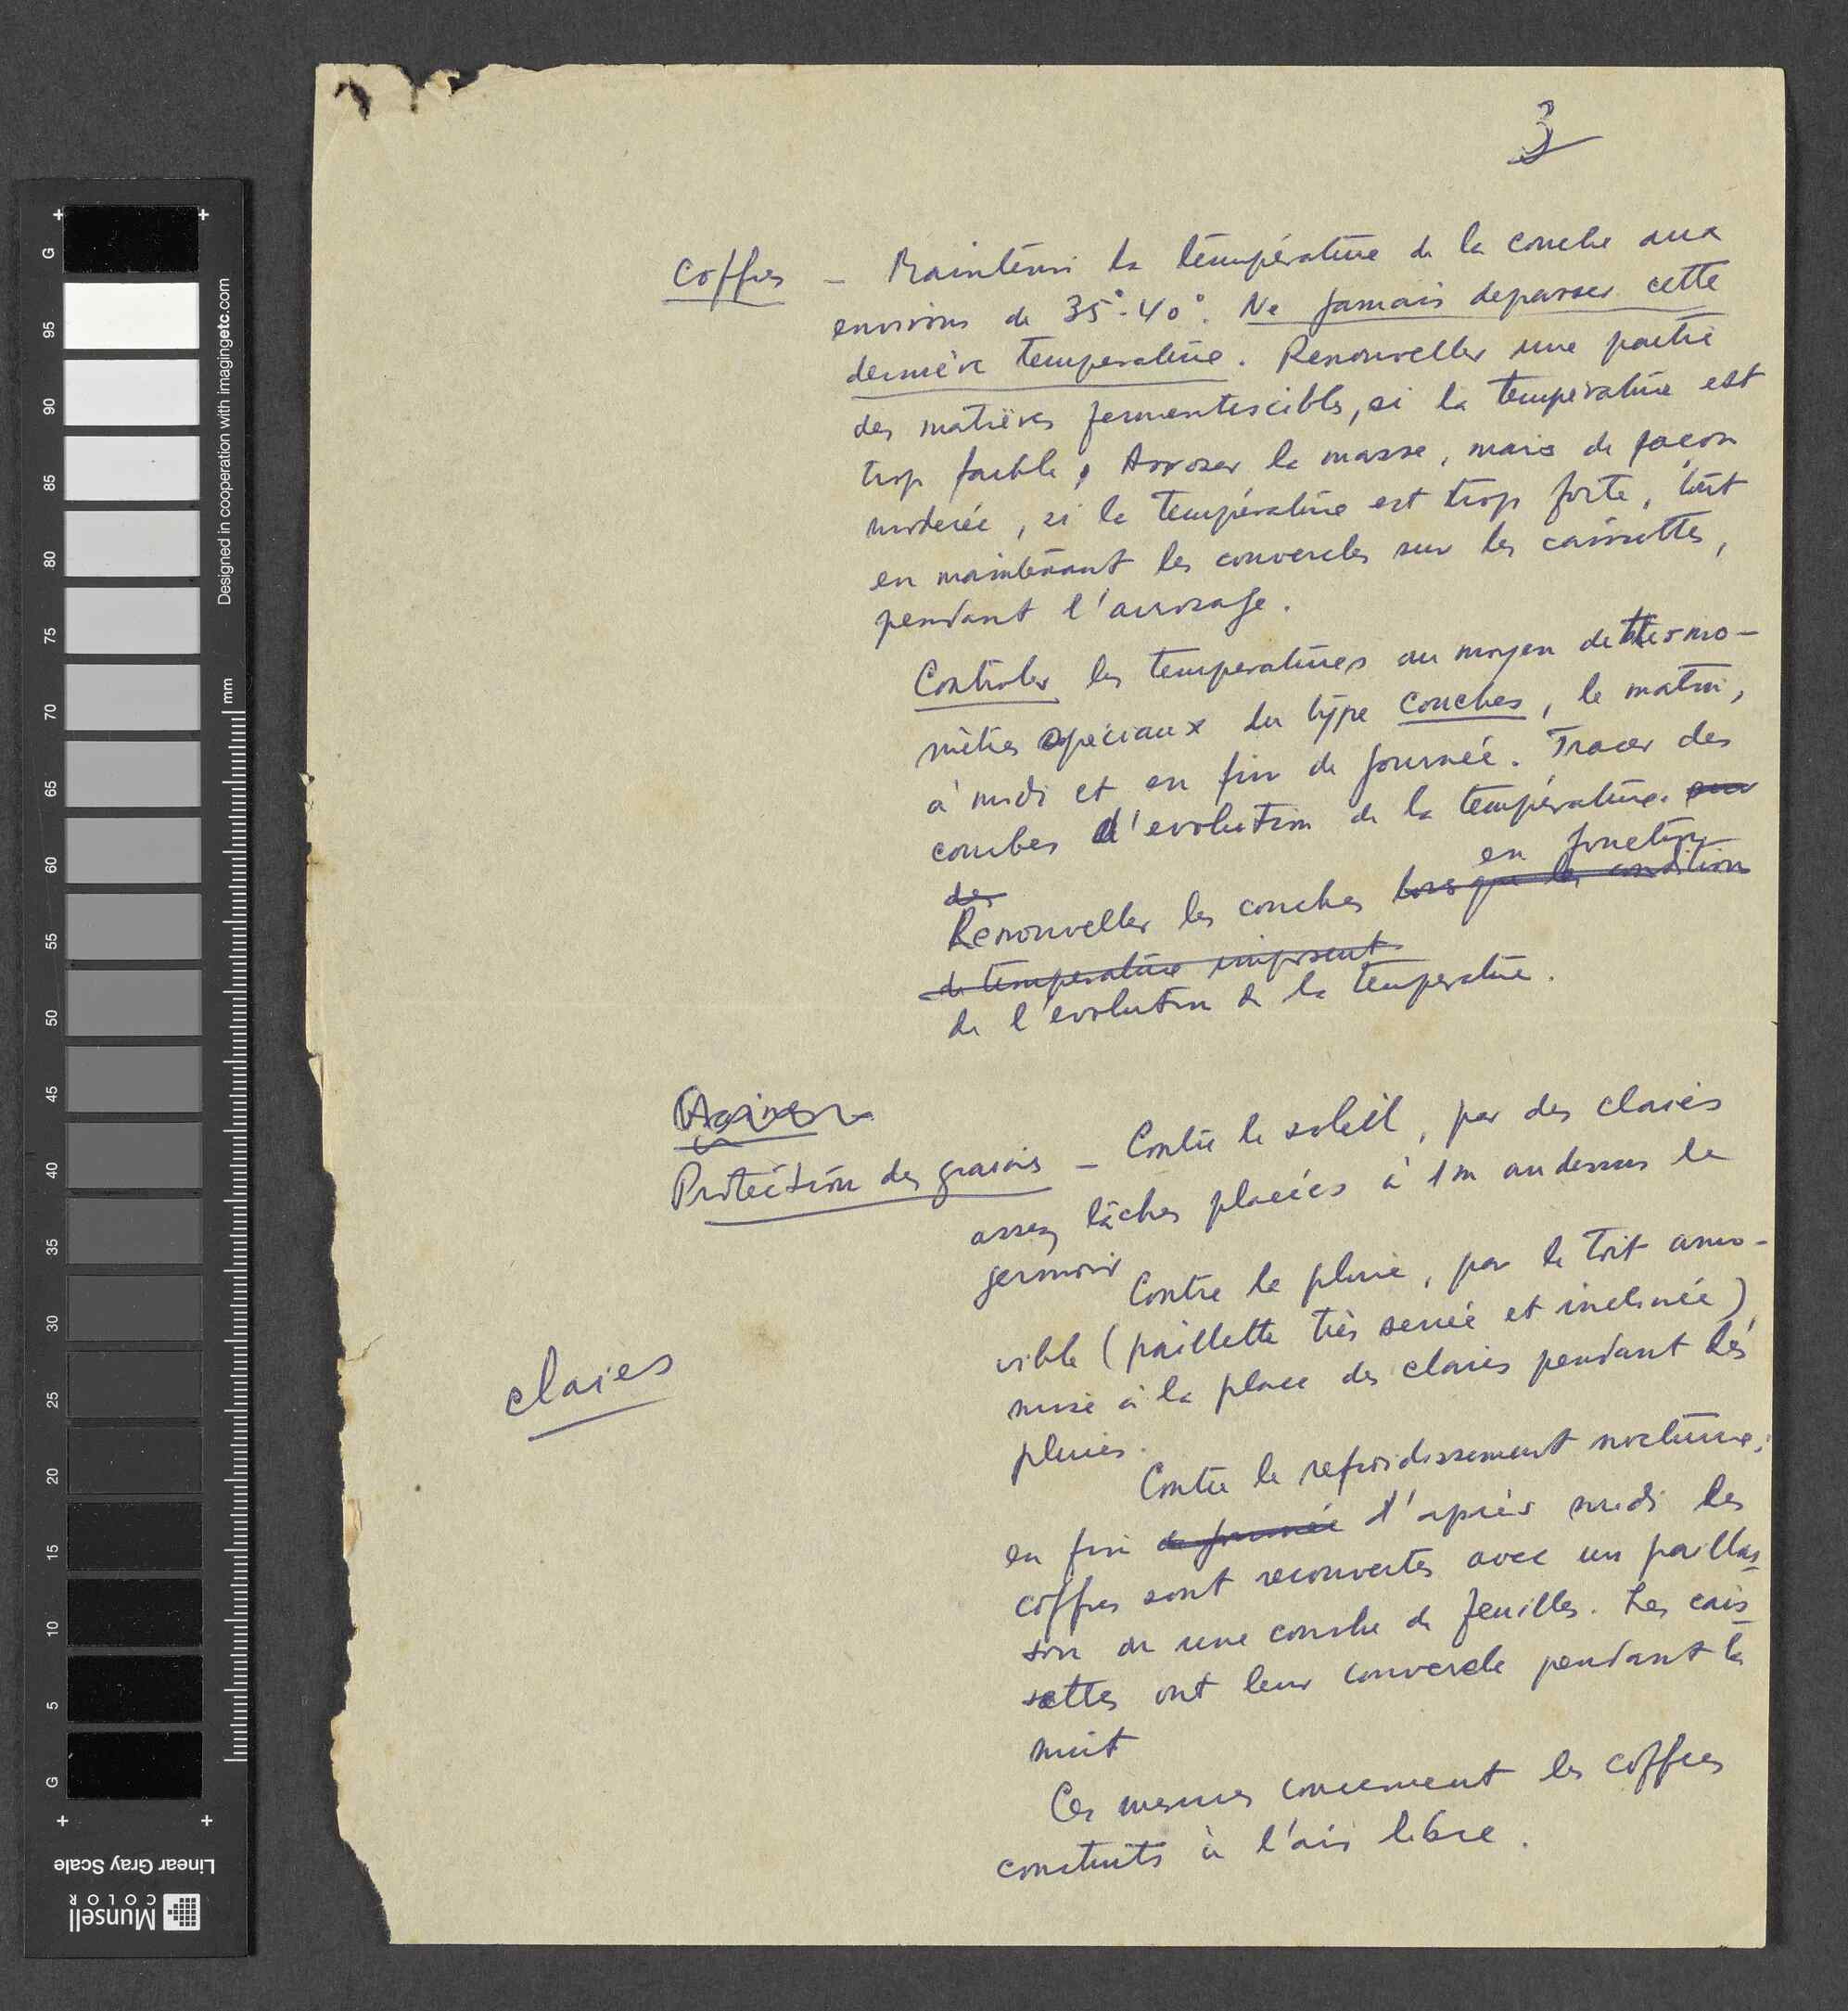 3
Coffres – Maintenir la température de la couche aux
environs de 35°-40°. Ne jamais depasser cette
dernière temperature. Renouveller une partie
des matières fermentescibles, si la température est
trop faible, Arroser la masse, mais de façon
moderée, si la température est trop forte, tout
en maintenant les couvercles sur les caissettes,
pendant l'arrosage.
Controler les temperatures au moyen de thermo-
mètres speciaux du type couches, le matin,
à midi et en fin de journée. Tracer des
courbes d'evolution de la température. sur
des
en fonction
Renouveller les couches lorsque les condition
de temperature imposent
de l'evolution de la temperature.
Protection des grains – Contre le soleil, par des claies
assez lâches placées à 1m au dessus le
germoir
Contre la pluie, par le toit amo-
vible (paillette très serrée et inclinée)
mise à la place des claies pendant les
pluies.
claies
Contre le refroidissement nocturne;
en fin de journée d'après midi les
coffres sont recouvertes avec un paillas-
son ou une couche de feuilles. Les cais-
settes ont leur couvercle pendant la
nuit
Ces mesures concernent les coffres
construits à l'air libre.
G
95
90
85
80
75
70
65
60
55
50
45
40
35
30
25
20
15
10
5
G
mm
Designed in cooperation with imagingetc.com
Linear Gray Scale
Munsell
COLOR